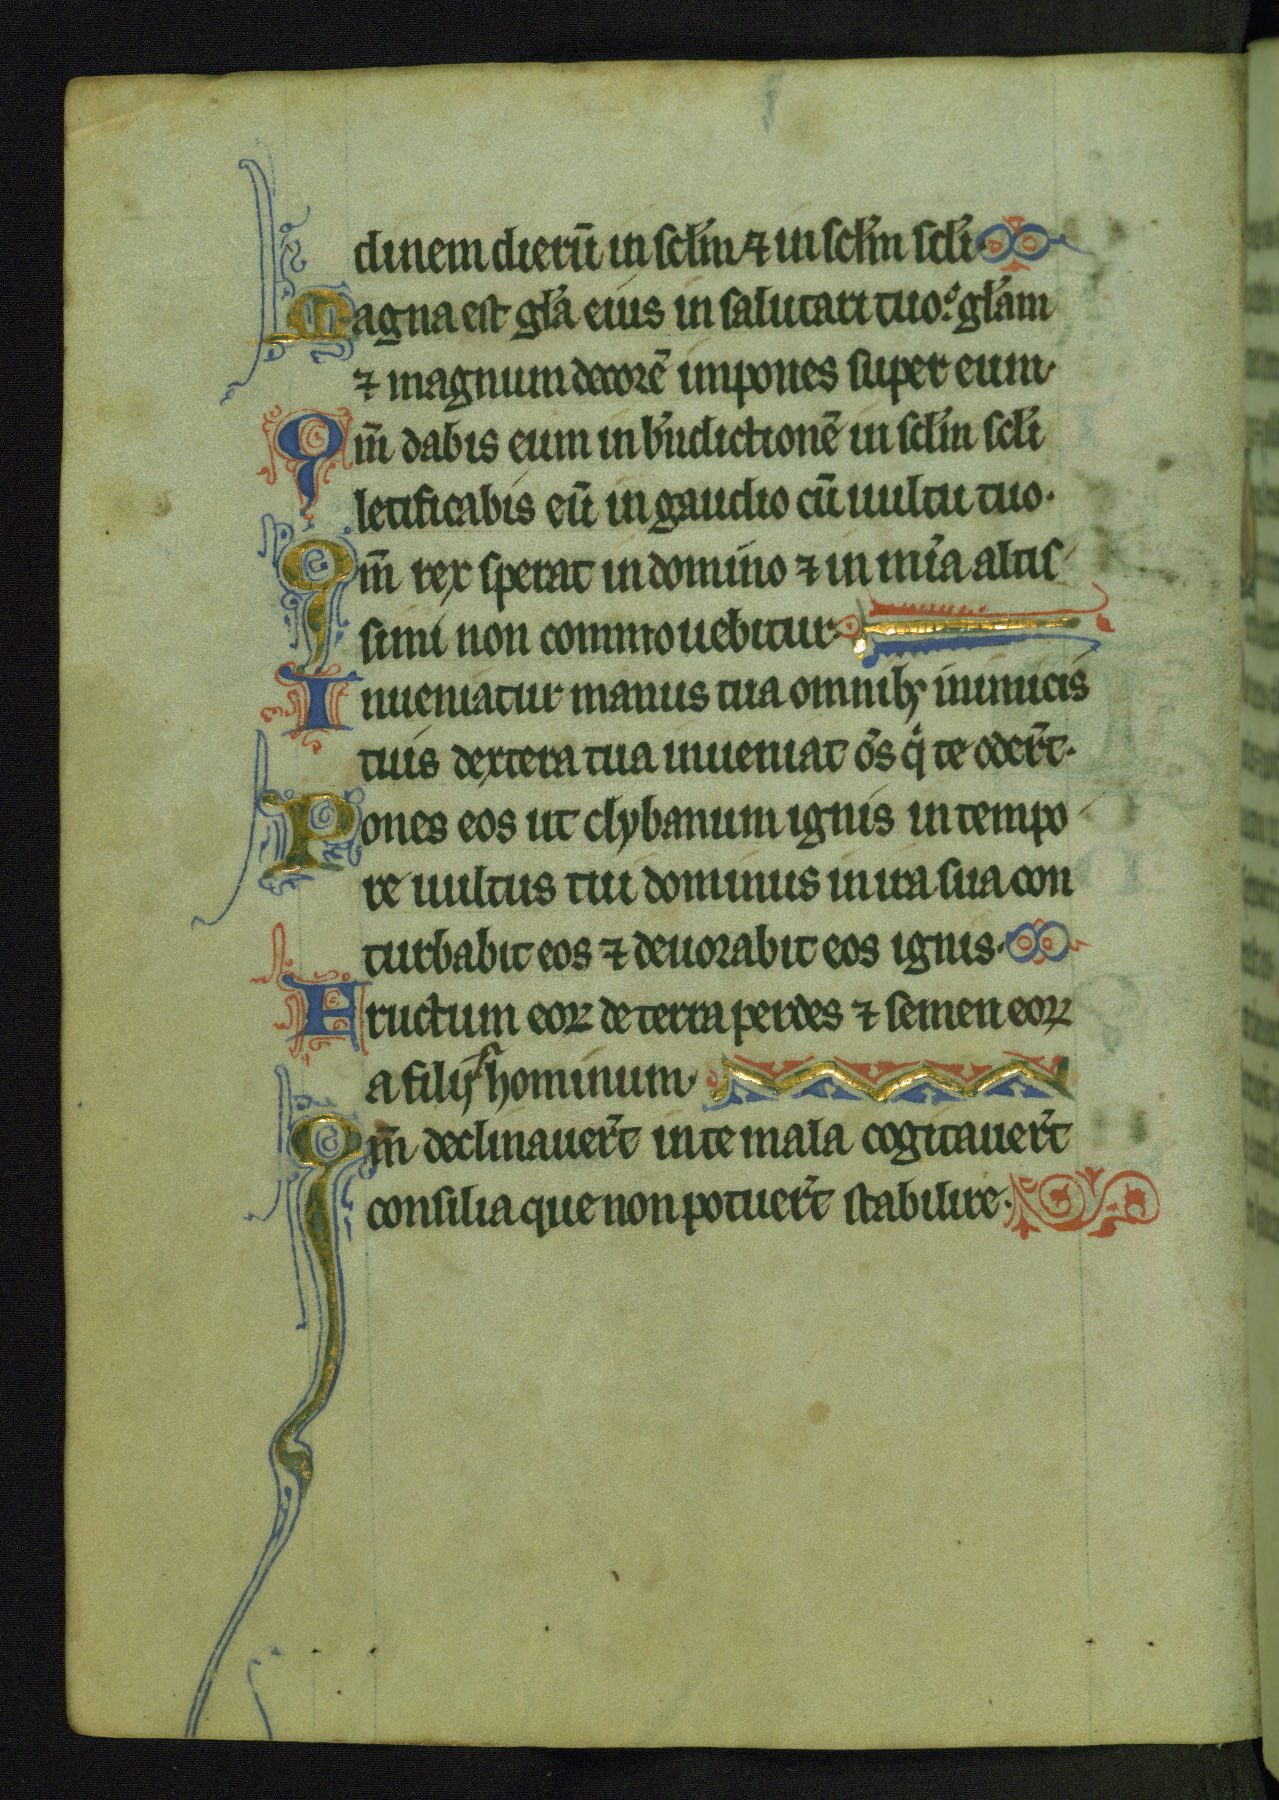 dinem dierū in scl̄m ⁊ in scl̄m scl̄i
Magna est gl̄a eius in salutari tuo: gl̄am
⁊ magnum decorē impones super eum·
Qm̄ dabis eum in bn̄dictionē in scl̄m scl̄i
letificabis eū in gaudio cū uultu tuo·
Qm̄ rex sperat in domino ⁊ in mīa altis
simi non commouebitur·
Inueniatur manus tua omnibꝫ inimicis
tuis dextera tua inueniat ōs q̇ te oder̄t·
Pones eos ut clybanum ignis in tempo
re uultus tui dominus in ira sua con
turbabit eos ⁊ deuorabit eos ignis·
Fructum eoꝝ de terra perdes ⁊ semen eoꝝ
a filijs hominum·
Qm̄ declinauer̄t in te mala cogitauer̄t
consilia que non potuer̄t stabilire·